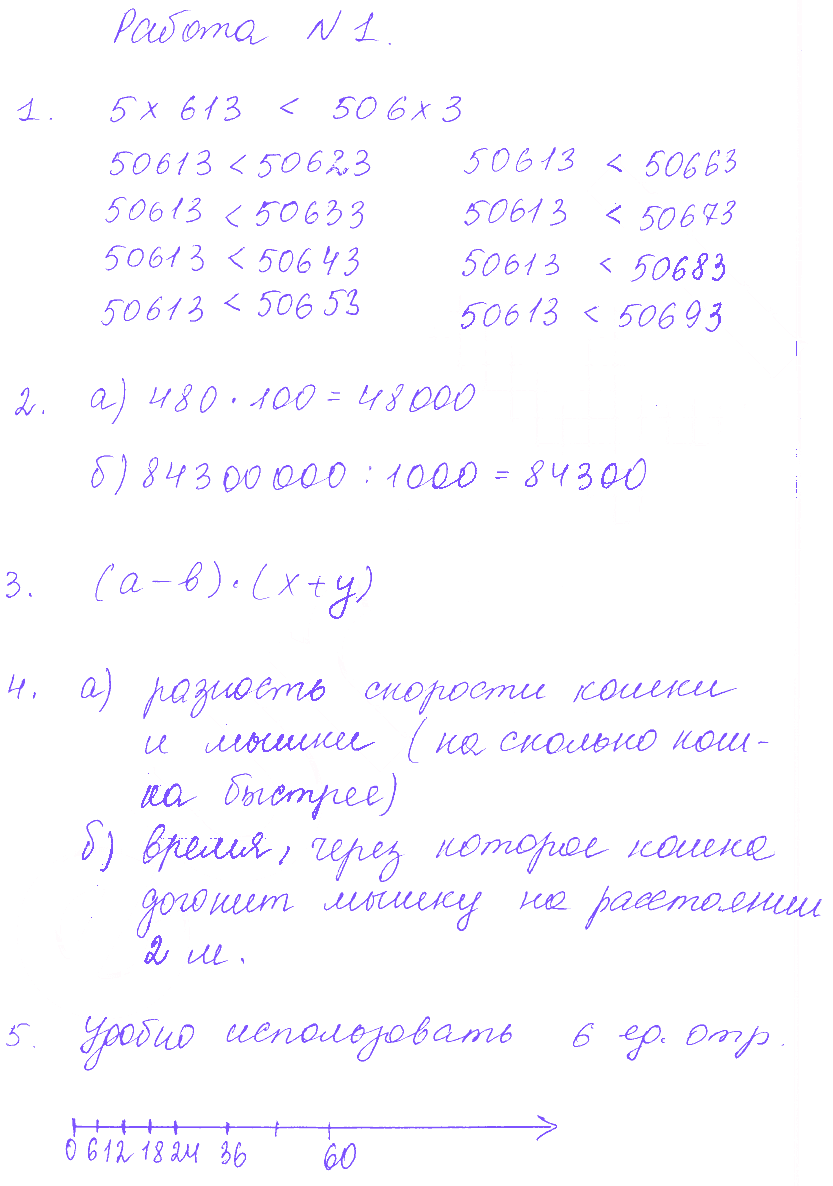 Работа N 1.
1. 5x 613 < 506x3
50613 < 50623 50613 < 50663
50613 < 50633 50613 < 50673
50613 < 50643 50613 < 50683
50613 < 50653 50613 < 50693
2. а) 480 · 100 = 48000
б) 84300000 : 1000 = 84300
3. (а – в) · (x + y)
4. а) разность скорости кошки
и мышки (на сколько кош-
ка быстрее)
б) время, через которое кошка
догонит мышку на расстоянии
2 м.
5. Удобно использовать 6 ед. отр.
0 6 12 18 24 36 60